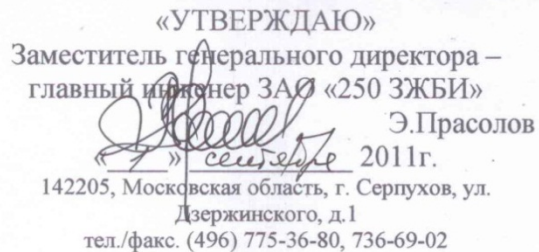 «УТВЕРЖДАЮ»
Заместитель генерального директора –
главный инженер ЗАО «250 ЗЖБИ»
Э.Прасолов
«___» сентября 2011г.
142205, Московская область, г. Серпухов, ул.
Дзержинского, д.1
тел./факс. (496) 775-36-80, 736-69-02